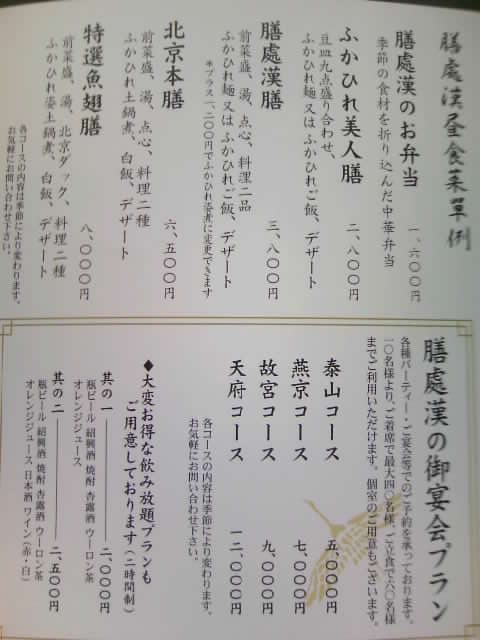 膳處漢昼食菜單例
膳處漢のお弁当
一、六〇〇円
季節の食材を折り込んだ中華弁当
ふかひれ美人膳
二、八〇〇円
豆皿九点盛り合わせ、
ふかひれ麺又はふかひれご飯、デザート
膳處漢膳
三、八〇〇円
前菜盛、湯、点心、料理二品
ふかひれ麺又はふかひれご飯、デザート
＊プラス一、二〇〇円でふかひれ姿煮に変更できます
北京本膳
六、五〇〇円
前菜盛、湯、点心、料理二種
ふかひれ土鍋煮、白飯、デザート
特選魚翅膳
八、〇〇〇円
前菜盛、湯、北京ダック、料理二種
ふかひれ姿土鍋煮、白飯、デザート
各コースの内容は季節により変わります。
お気軽にお問い合わせ下さい。
膳處漢の御宴会プラン
各種パーティー・ご宴会等でのご予約を承っております。
一〇名様より、ご着席で最大四〇名様、ご立食で六〇名様
までご利用いただけます。個室のご用意もございます。
泰山コース 五、〇〇〇円
燕京コース 七、〇〇〇円
故宮コース 九、〇〇〇円
天府コース 一二、〇〇〇円
各コースの内容は季節により変わります。
お気軽にお問い合わせ下さい。
◆大変お得な飲み放題プランも
ご用意しております（二時間制）
其の一 二、〇〇〇円
瓶ビール 紹興酒 焼酎 杏露酒 ウーロン茶
オレンジジュース
其の二 二、五〇〇円
瓶ビール 紹興酒 焼酎 杏露酒 ウーロン茶
オレンジジュース 日本酒 ワイン（赤・白）